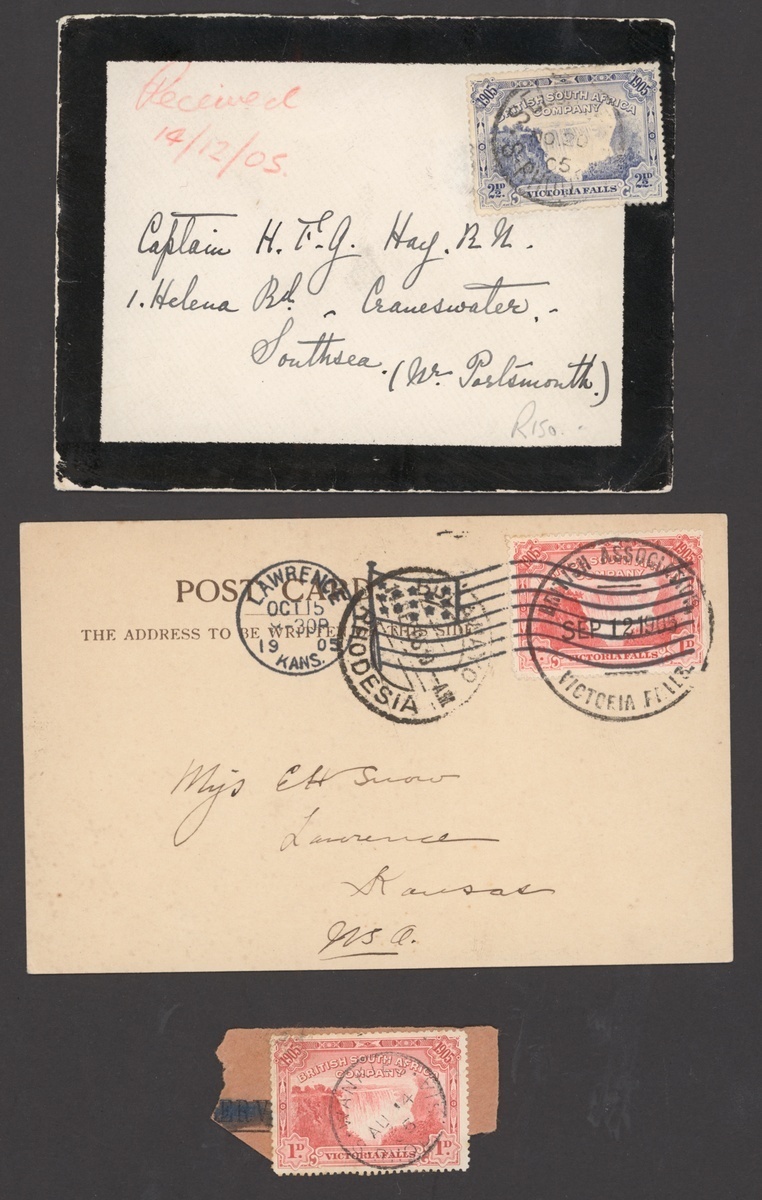 Received
14/12/05.
1905 1905
BRITISH SOUTH AFRICA
COMPANY
2½D 2½D
VICTORIA FALLS
Captain H. F. G. Hay. R.N.
1. Helena Rd. Craneswater.
Southsea. (Nr. Portsmouth.)
R150.
POST CARD
THE ADDRESS TO BE WRITTEN THIS SIDE
LAWRENCE
OCT 15
-30P
19 05
KANS.
RHODESIA
AM
1905 1905
1D
VICTORIA FALLS
BRITISH ASSOCIATION
SEP 12 1905
VICTORIA FALLS
Miss E H Snow
Lawrence
Kansas
U.S.A.
1905 1905
BRITISH SOUTH AFRICA
COMPANY
AU 14
5
1D 1D
VICTORIA FALLS
ERV